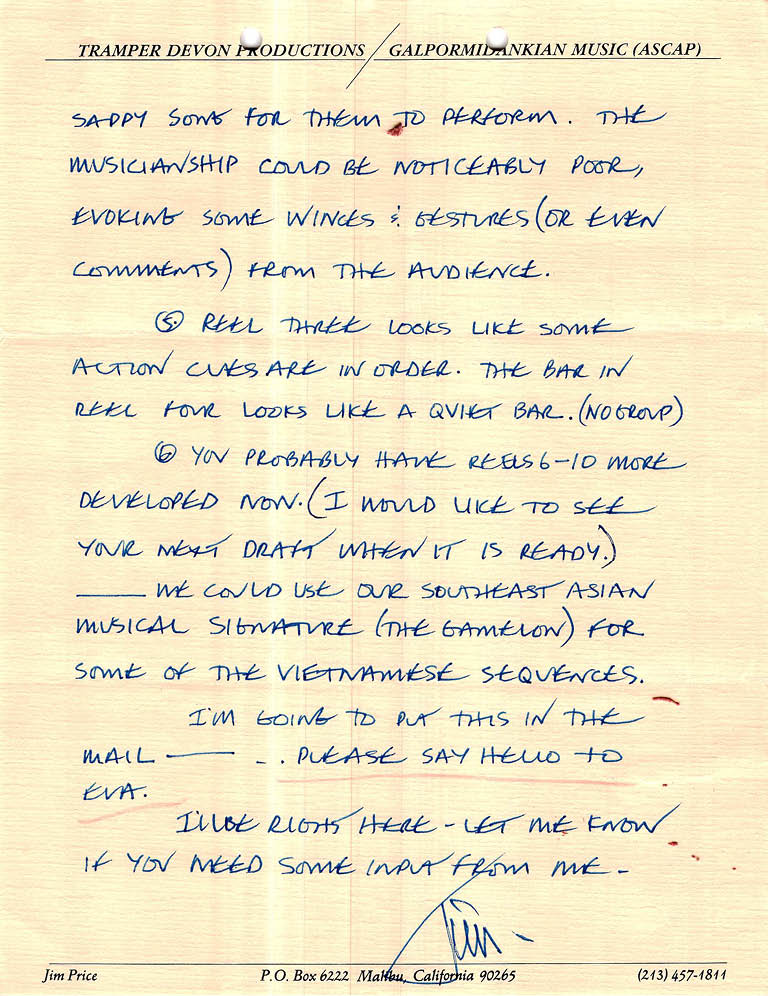 TRAMPER DEVON PRODUCTIONS / GALPORMIDANKIAN MUSIC (ASCAP)
SAPPY SONG FOR THEM TO PERFORM. THE
MUSICIANSHIP COULD BE NOTICEABLY POOR,
EVOKING SOME WINCES & GESTURES (OR EVEN
COMMENTS) FROM THE AUDIENCE.
⑤ REEL THREE LOOKS LIKE SOME
ACTION CUES ARE IN ORDER. THE BAR IN
REEL FOUR LOOKS LIKE A QUIET BAR. (NO GROUP)
⑥ YOU PROBABLY HAVE REELS 6-10 MORE
DEVELOPED NOW. (I WOULD LIKE TO SEE
YOUR NEXT DRAFT WHEN IT IS READY.)
—— WE COULD USE OUR SOUTHEAST ASIAN
MUSICAL SIGNATURE (THE GAMELON) FOR
SOME OF THE VIETNAMESE SEQUENCES.
I'M GOING TO PUT THIS IN THE
MAIL —— - . . PLEASE SAY HELLO TO
EVA.
I'LL BE RIGHT HERE - LET ME KNOW
IF YOU NEED SOME INPUT FROM ME -
Jim -
Jim Price P.O. Box 6222 Malibu, California 90265 (213) 457-1811